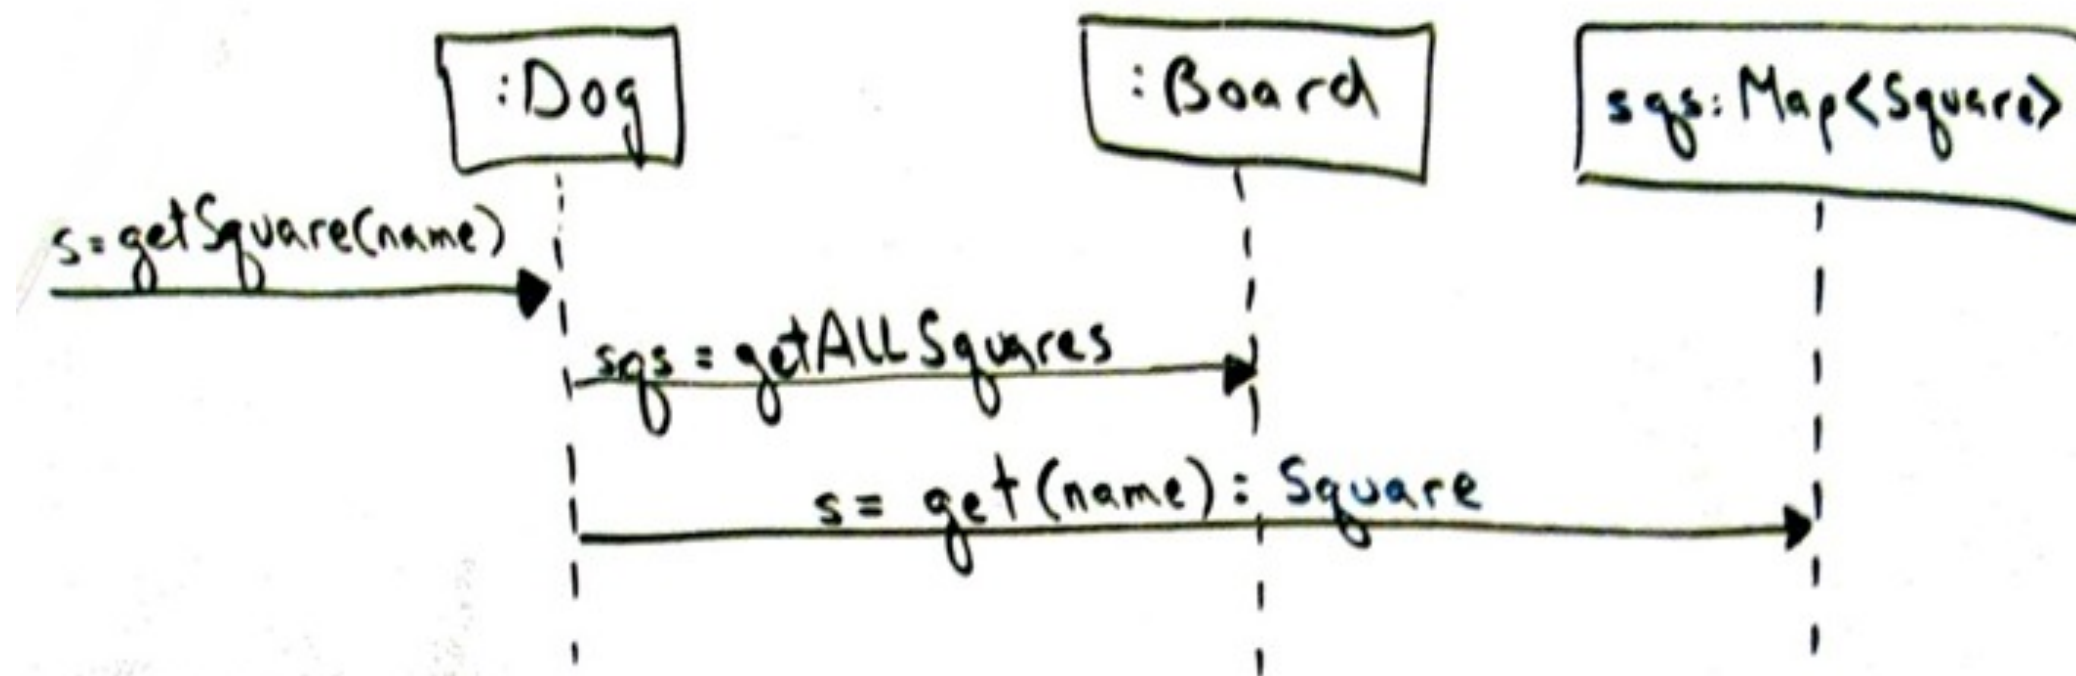 :Dog
:Board
sqs:Map<Square>
s=getSquare(name)
sqs = getALLSquares
s= get(name): Square